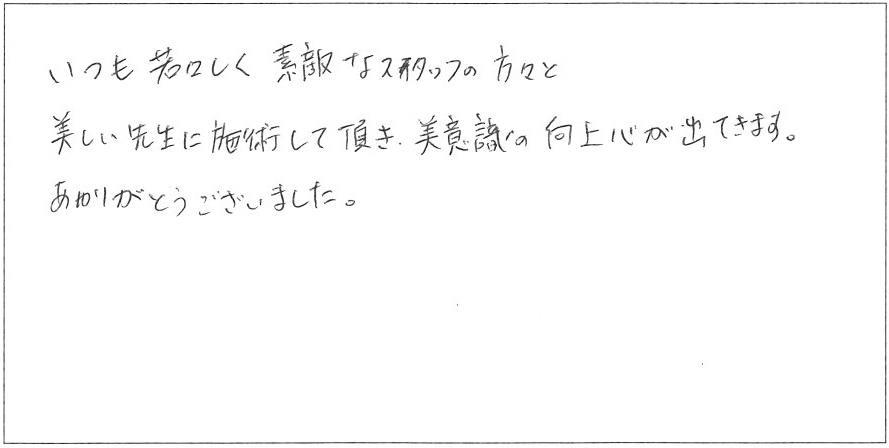 いつも若々しく素敵なスタッフの方々と
美しい先生に施術して頂き、美意識の向上心が出てきます。
ありがとうございました。